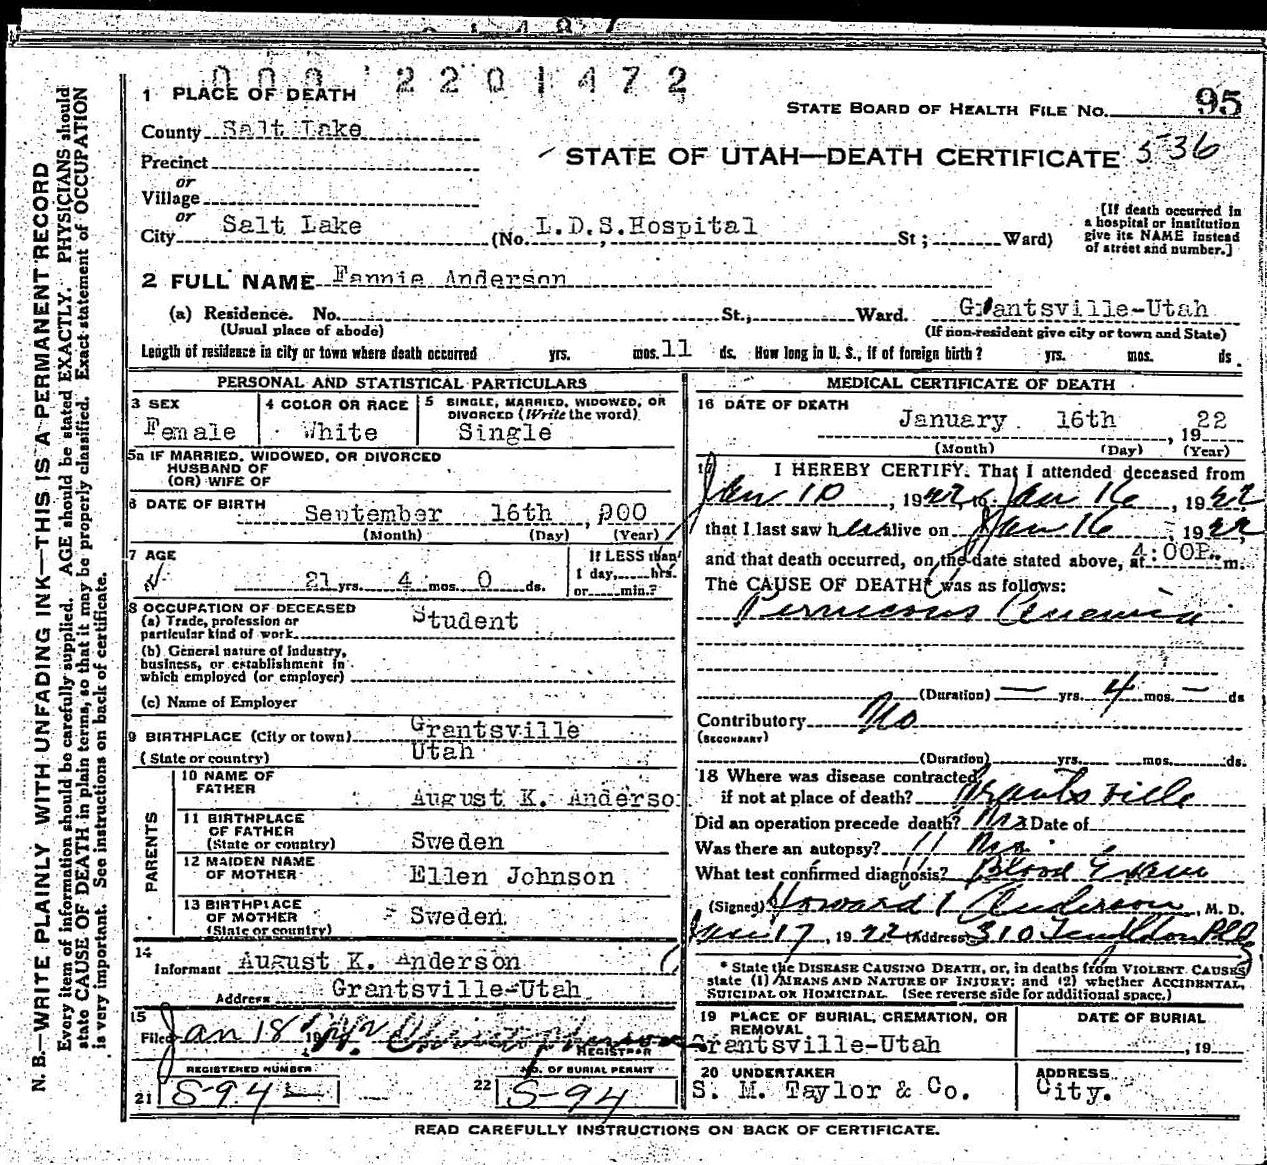 000 2201472
1 PLACE OF DEATH
STATE BOARD OF HEALTH FILE NO. 95
County Salt Lake
STATE OF UTAH—DEATH CERTIFICATE 536
Precinct
or
Village
or
City Salt Lake (No. L.D.S.Hospital St; Ward)
[If death occurred in
a hospital or institution
give its NAME instead
of street and number.]
2 FULL NAME Fannie Anderson
(a) Residence. No. St., Ward. Grantsville-Utah
(Usual place of abode) (If non-resident give city or town and State)
Length of residence in city or town where death occurred yrs. mos. 11 ds. How long in U. S., if of foreign birth? yrs. mos. ds.
PERSONAL AND STATISTICAL PARTICULARS
3 SEX
Female
4 COLOR OR RACE
White
5 SINGLE, MARRIED, WIDOWED, OR
DIVORCED (Write the word)
Single
5a IF MARRIED, WIDOWED, OR DIVORCED
HUSBAND OF
(OR) WIFE OF
6 DATE OF BIRTH
September 16th , 900
(Month) (Day) (Year)
7 AGE
21 yrs. 4 mos. 0 ds.
If LESS than
1 day, hrs.
or min.?
8 OCCUPATION OF DECEASED
(a) Trade, profession or
particular kind of work Student
(b) General nature of industry,
business, or establishment in
which employed (or employer)
(c) Name of Employer
9 BIRTHPLACE (City or town) Grantsville
(State or country) Utah
PARENTS
10 NAME OF
FATHER August K. Anderso
11 BIRTHPLACE
OF FATHER
(State or country) Sweden
12 MAIDEN NAME
OF MOTHER Ellen Johnson
13 BIRTHPLACE
OF MOTHER
(State or country) Sweden
14
Informant August K. Anderson
Address Grantsville-Utah
15
Filed Jan 18 19
REGISTRAR
REGISTERED NUMBER
21 S-94
NO. OF BURIAL PERMIT
22 S-94
MEDICAL CERTIFICATE OF DEATH
16 DATE OF DEATH
January 16th , 1922
(Month) (Day) (Year)
17 I HEREBY CERTIFY, That I attended deceased from
Jan 10, 1922, to Jan 16, 1922
that I last saw her alive on Jan 16, 1922
and that death occurred, on the date stated above, at 4:00P. m.
The CAUSE OF DEATH* was as follows:
Pernicious Anemia
(Duration) — yrs. 4 mos. — ds
Contributory No
(SECONDARY)
(Duration) yrs. mos. ds.
18 Where was disease contracted
if not at place of death? Grantsville
Did an operation precede death? No Date of
Was there an autopsy? No
What test confirmed diagnosis? Blood Exam
(Signed) Howard Anderson, M. D.
Jan 17, 1922 (Address) 310 Templeton Bldg
* State the DISEASE CAUSING DEATH, or, in deaths from VIOLENT CAUSES
state (1) MEANS AND NATURE OF INJURY; and (2) whether ACCIDENTAL,
SUICIDAL OR HOMICIDAL. (See reverse side for additional space.)
19 PLACE OF BURIAL, CREMATION, OR
REMOVAL
Grantsville-Utah
DATE OF BURIAL
, 19
20 UNDERTAKER
S. M. Taylor & Co.
ADDRESS
City.
READ CAREFULLY INSTRUCTIONS ON BACK OF CERTIFICATE.
N. B.—WRITE PLAINLY WITH UNFADING INK—THIS IS A PERMANENT RECORD
Every item of information should be carefully supplied. AGE should be stated EXACTLY. PHYSICIANS should
state CAUSE OF DEATH in plain terms, so that it may be properly classified. Exact statement of OCCUPATION
is very important. See instructions on back of certificate.